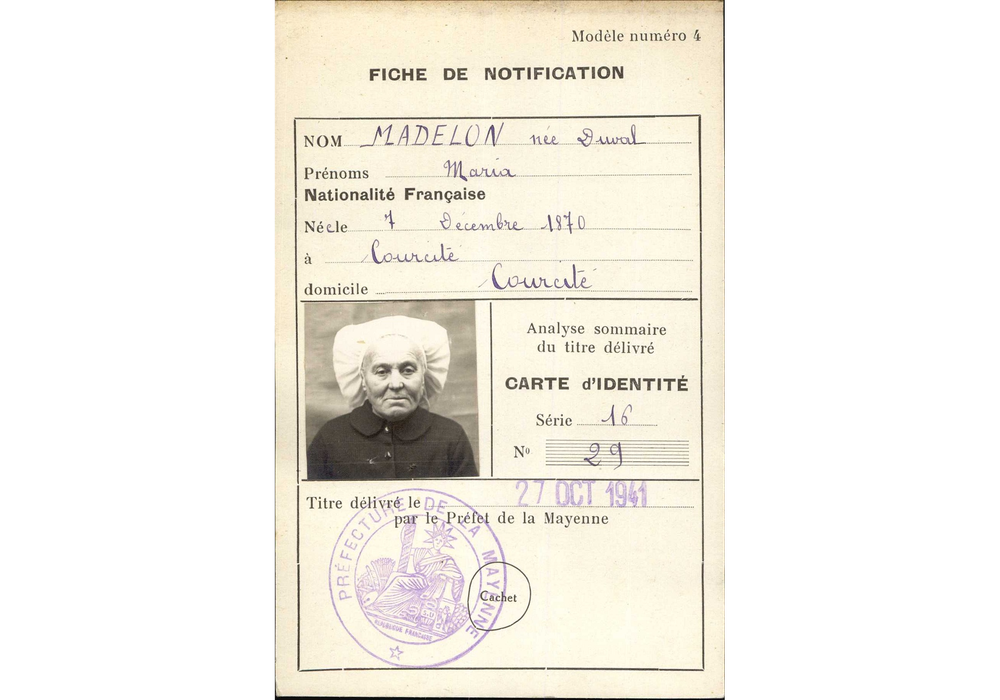 Modèle numéro 4
FICHE DE NOTIFICATION
NOM MADELON née Duval
Prénoms Maria
Nationalité Française
Néele 7 Décembre 1870
à Courcité
domicile Courcité
Analyse sommaire
du titre délivré
CARTE d'IDENTITÉ
Série 16
Nº 29
Titre délivré le 27 OCT 1941
par le Préfet de la Mayenne
PRÉFECTURE DE LA MAYENNE
RÉPUBLIQUE FRANÇAISE
Cachet